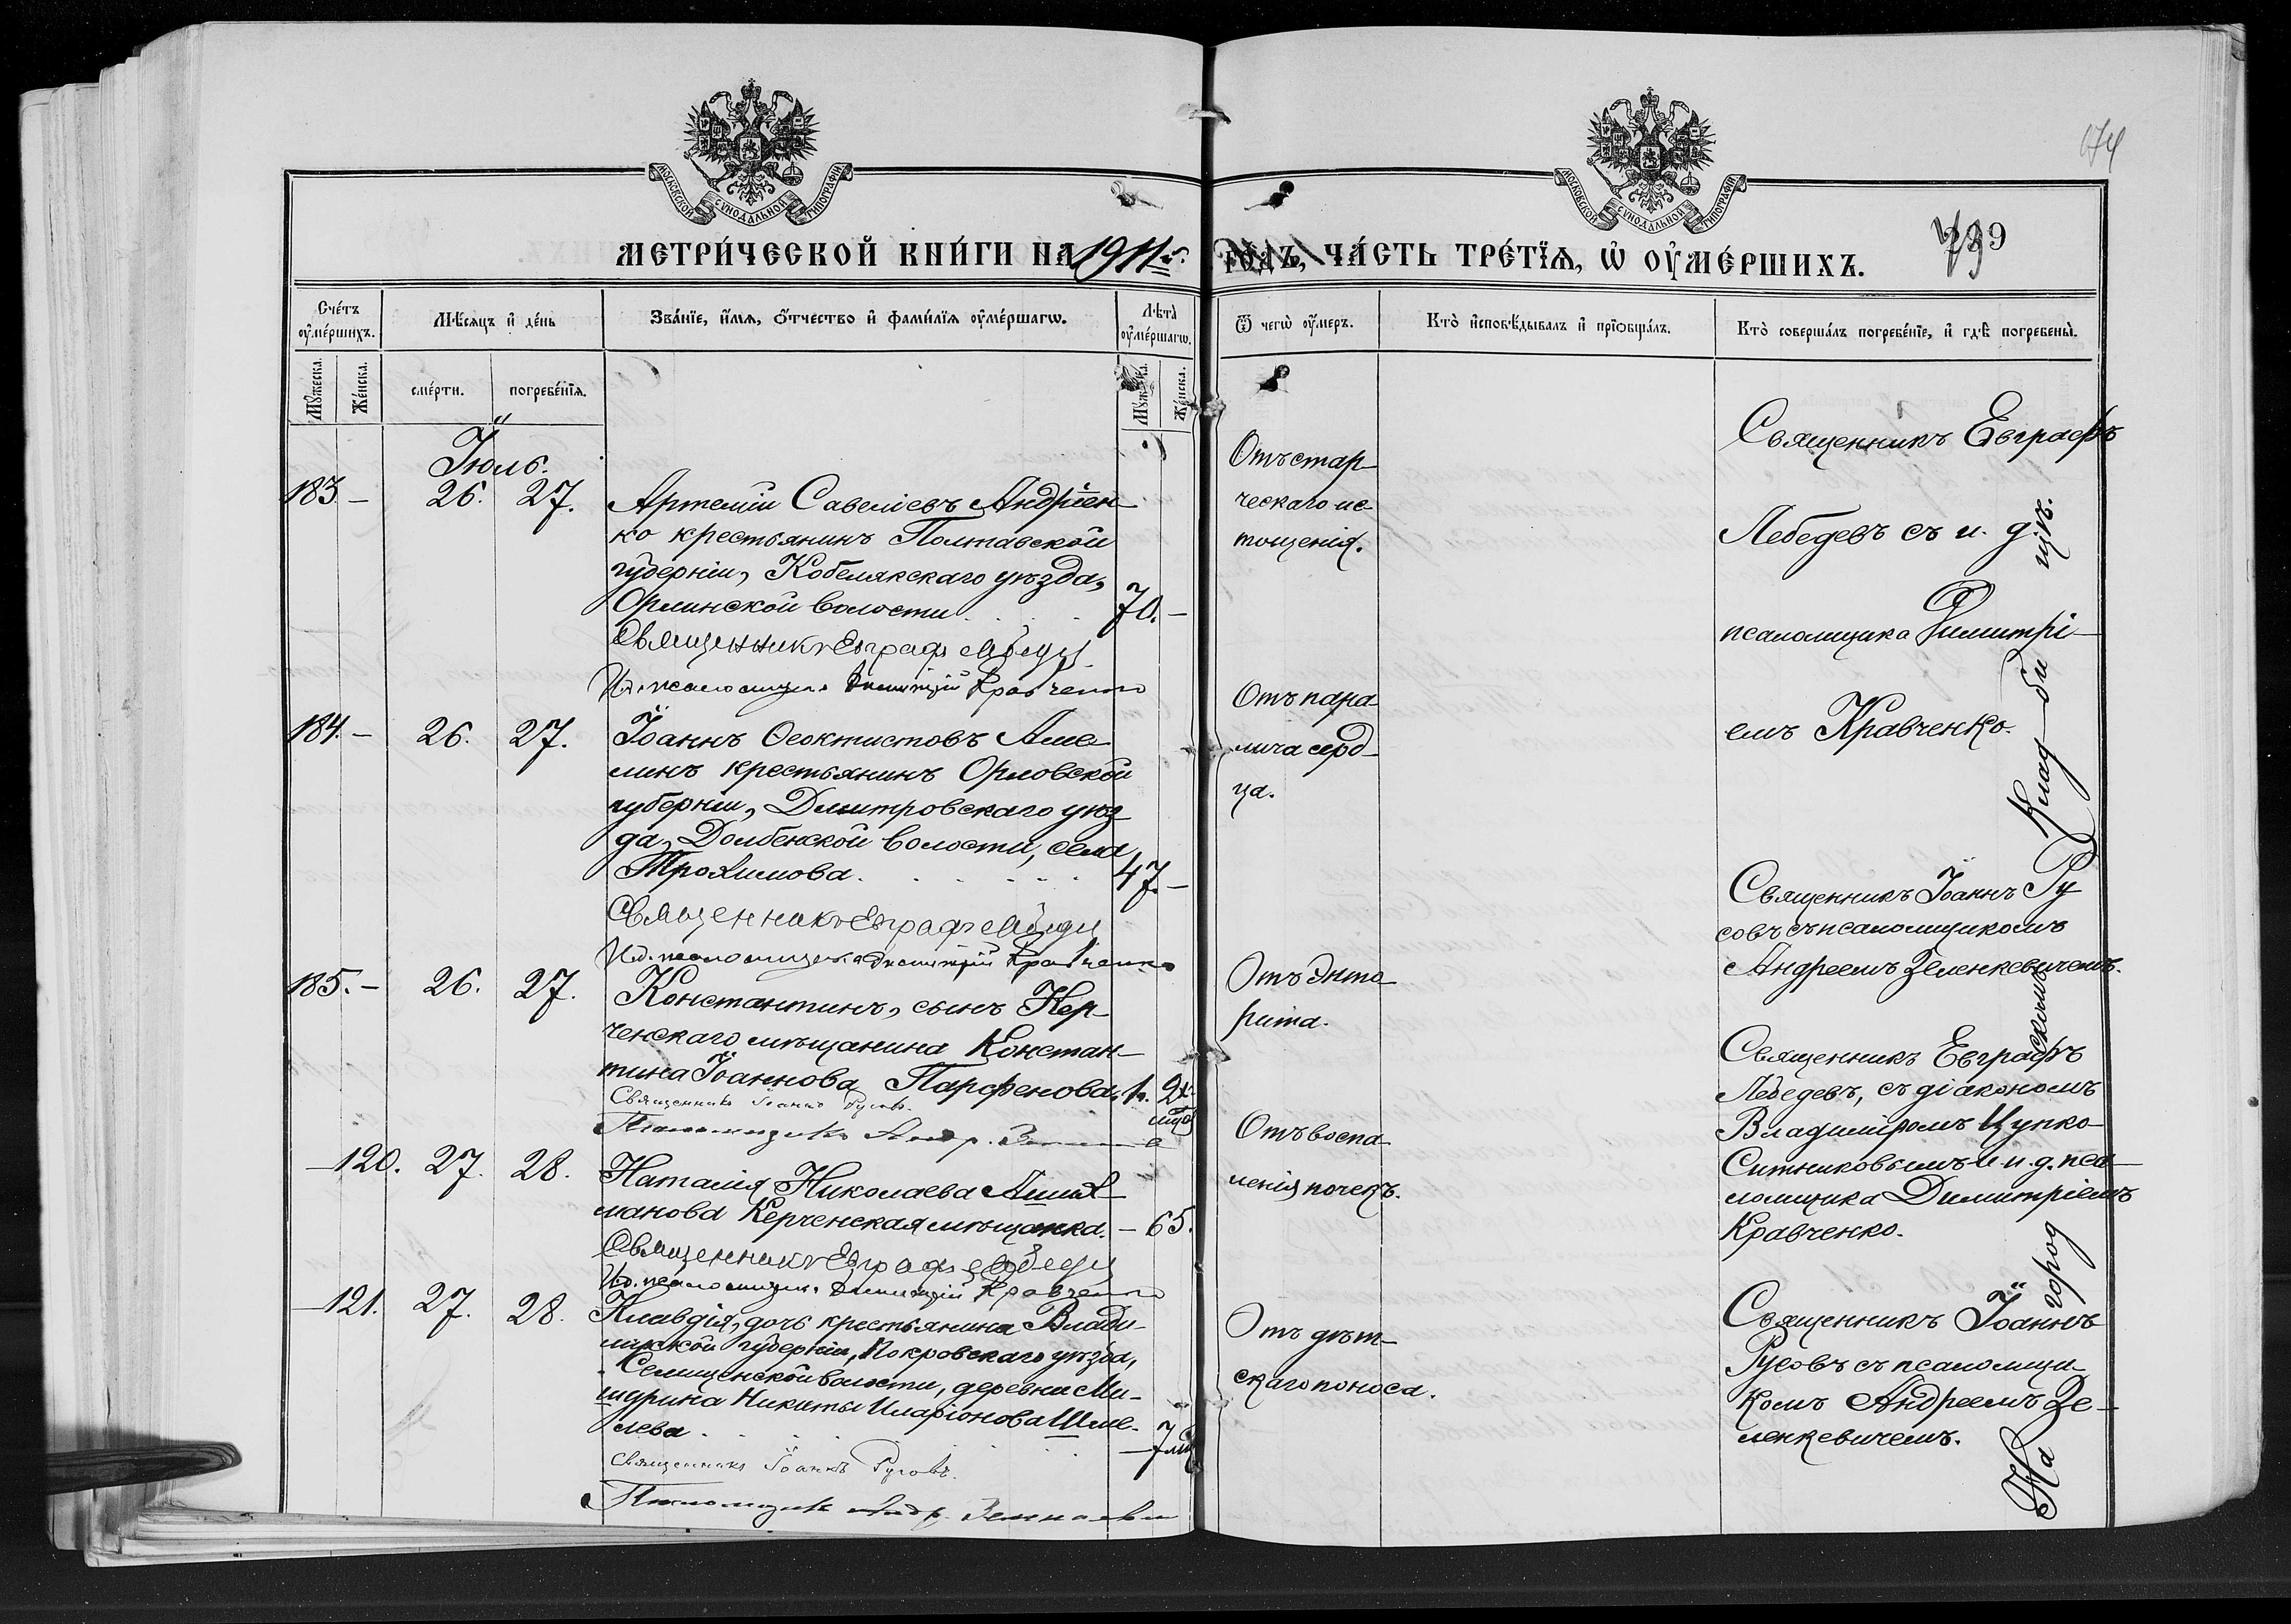 МОСКОВСКОЙ СѴНОДАЛЬНОЙ ТИПОГРАФІИ
МОСКОВСКОЙ СѴНОДАЛЬНОЙ ТИПОГРАФІИ
МЕТРИ́ЧЕСКОЙ КНИ́ГИ НА 1911 ГО́ДЪ, ЧА́СТЬ ТРЕ́ТЇѦ, Ѡ҆ ОУ҆МЕ́РШИХЪ.
Сче́тъ оу҆ме́ршихъ.
Мѣ́сяцъ и҆ де́нь
Зва́нїе, и҆́мѧ, ѻ҆́тчество и҆ фами́лїѧ оу҆ме́ршагѡ.
Лѣ́та оу҆ме́ршагѡ.
Ѿ чегѡ̀ оу҆́меръ.
Кто̀ и҆сповѣ́дывалъ и҆ прїѡбща́лъ.
Кто̀ соверша́лъ погребе́нїе, и҆ гдѣ̀ погребены̀.
Мꙋ́жеска.
Же́нска.
сме́рти.
погребе́нїѧ.
Мꙋ́жеска.
Же́нска.
Іюль.
183 – 26. 27. Артемій Савеліевъ Андріен-
ко крестьянинъ Полтавской
губерніи, Кобелякскаго уѣзда,
Орлинской волости. 70. –
Священникъ Евграфъ Лебедевъ
И.д. псаломщика Димитрій Кравченко
Отъ стар-
ческаго ис-
тощенія.
Священникъ Евграфъ
Лебедевъ съ и. д.
псаломщика Димитрі-
емъ Кравченко.
184. – 26. 27. Іоаннъ Ѳеоктистовъ Аме-
линъ крестьянинъ Орловской
губерніи, Дмитровскаго уѣз-
да, Долбенской волости, села
Трохимова. 47. –
Священникъ Евграфъ Лебедевъ
И.д. псаломщика Димитрій Кравченко
Отъ пара-
лича серд-
ца.
185. – 26. 27. Константинъ, сынъ Кер-
ченскаго мѣщанина Констан-
тина Іоаннова Парфенова. 1. 2
Священникъ Іоаннъ Русовъ.
Псаломщикъ Андр.
Отъ энте-
рита.
Священникъ Іоаннъ Ру-
совъ съ псаломщикомъ
Андреемъ Зеленкевичемъ.
– 120. 27. 28. Наталія Николаева
манова Керченская мѣщанка. – 65.
Священникъ Евграфъ Лебедевъ
И.д. псаломщика Димитрій Кравченко
Отъ воспа-
ленія почекъ.
Священникъ Евграфъ
Лебедевъ, съ діакономъ
Владиміромъ Цупко-
Ситниковымъ и и. д. пса-
ломщика Димитріемъ
Кравченко.
– 121. 27. 28. Клавдія, дочь крестьянина Влади-
мірской губерніи, Покровскаго уѣзда,
Селищенской волости, деревни Ми-
шурина Никиты Иларіонова Шме-
лева. – 7 мц
Священникъ Іоаннъ Русовъ.
Псаломщикъ Андр. Зеленкевич
Отъ дѣт-
скаго поноса.
Священникъ Іоаннъ
Русовъ съ псаломщи-
комъ Андреемъ Зе-
ленкевичемъ.
На городскомъ кладбищѣ.